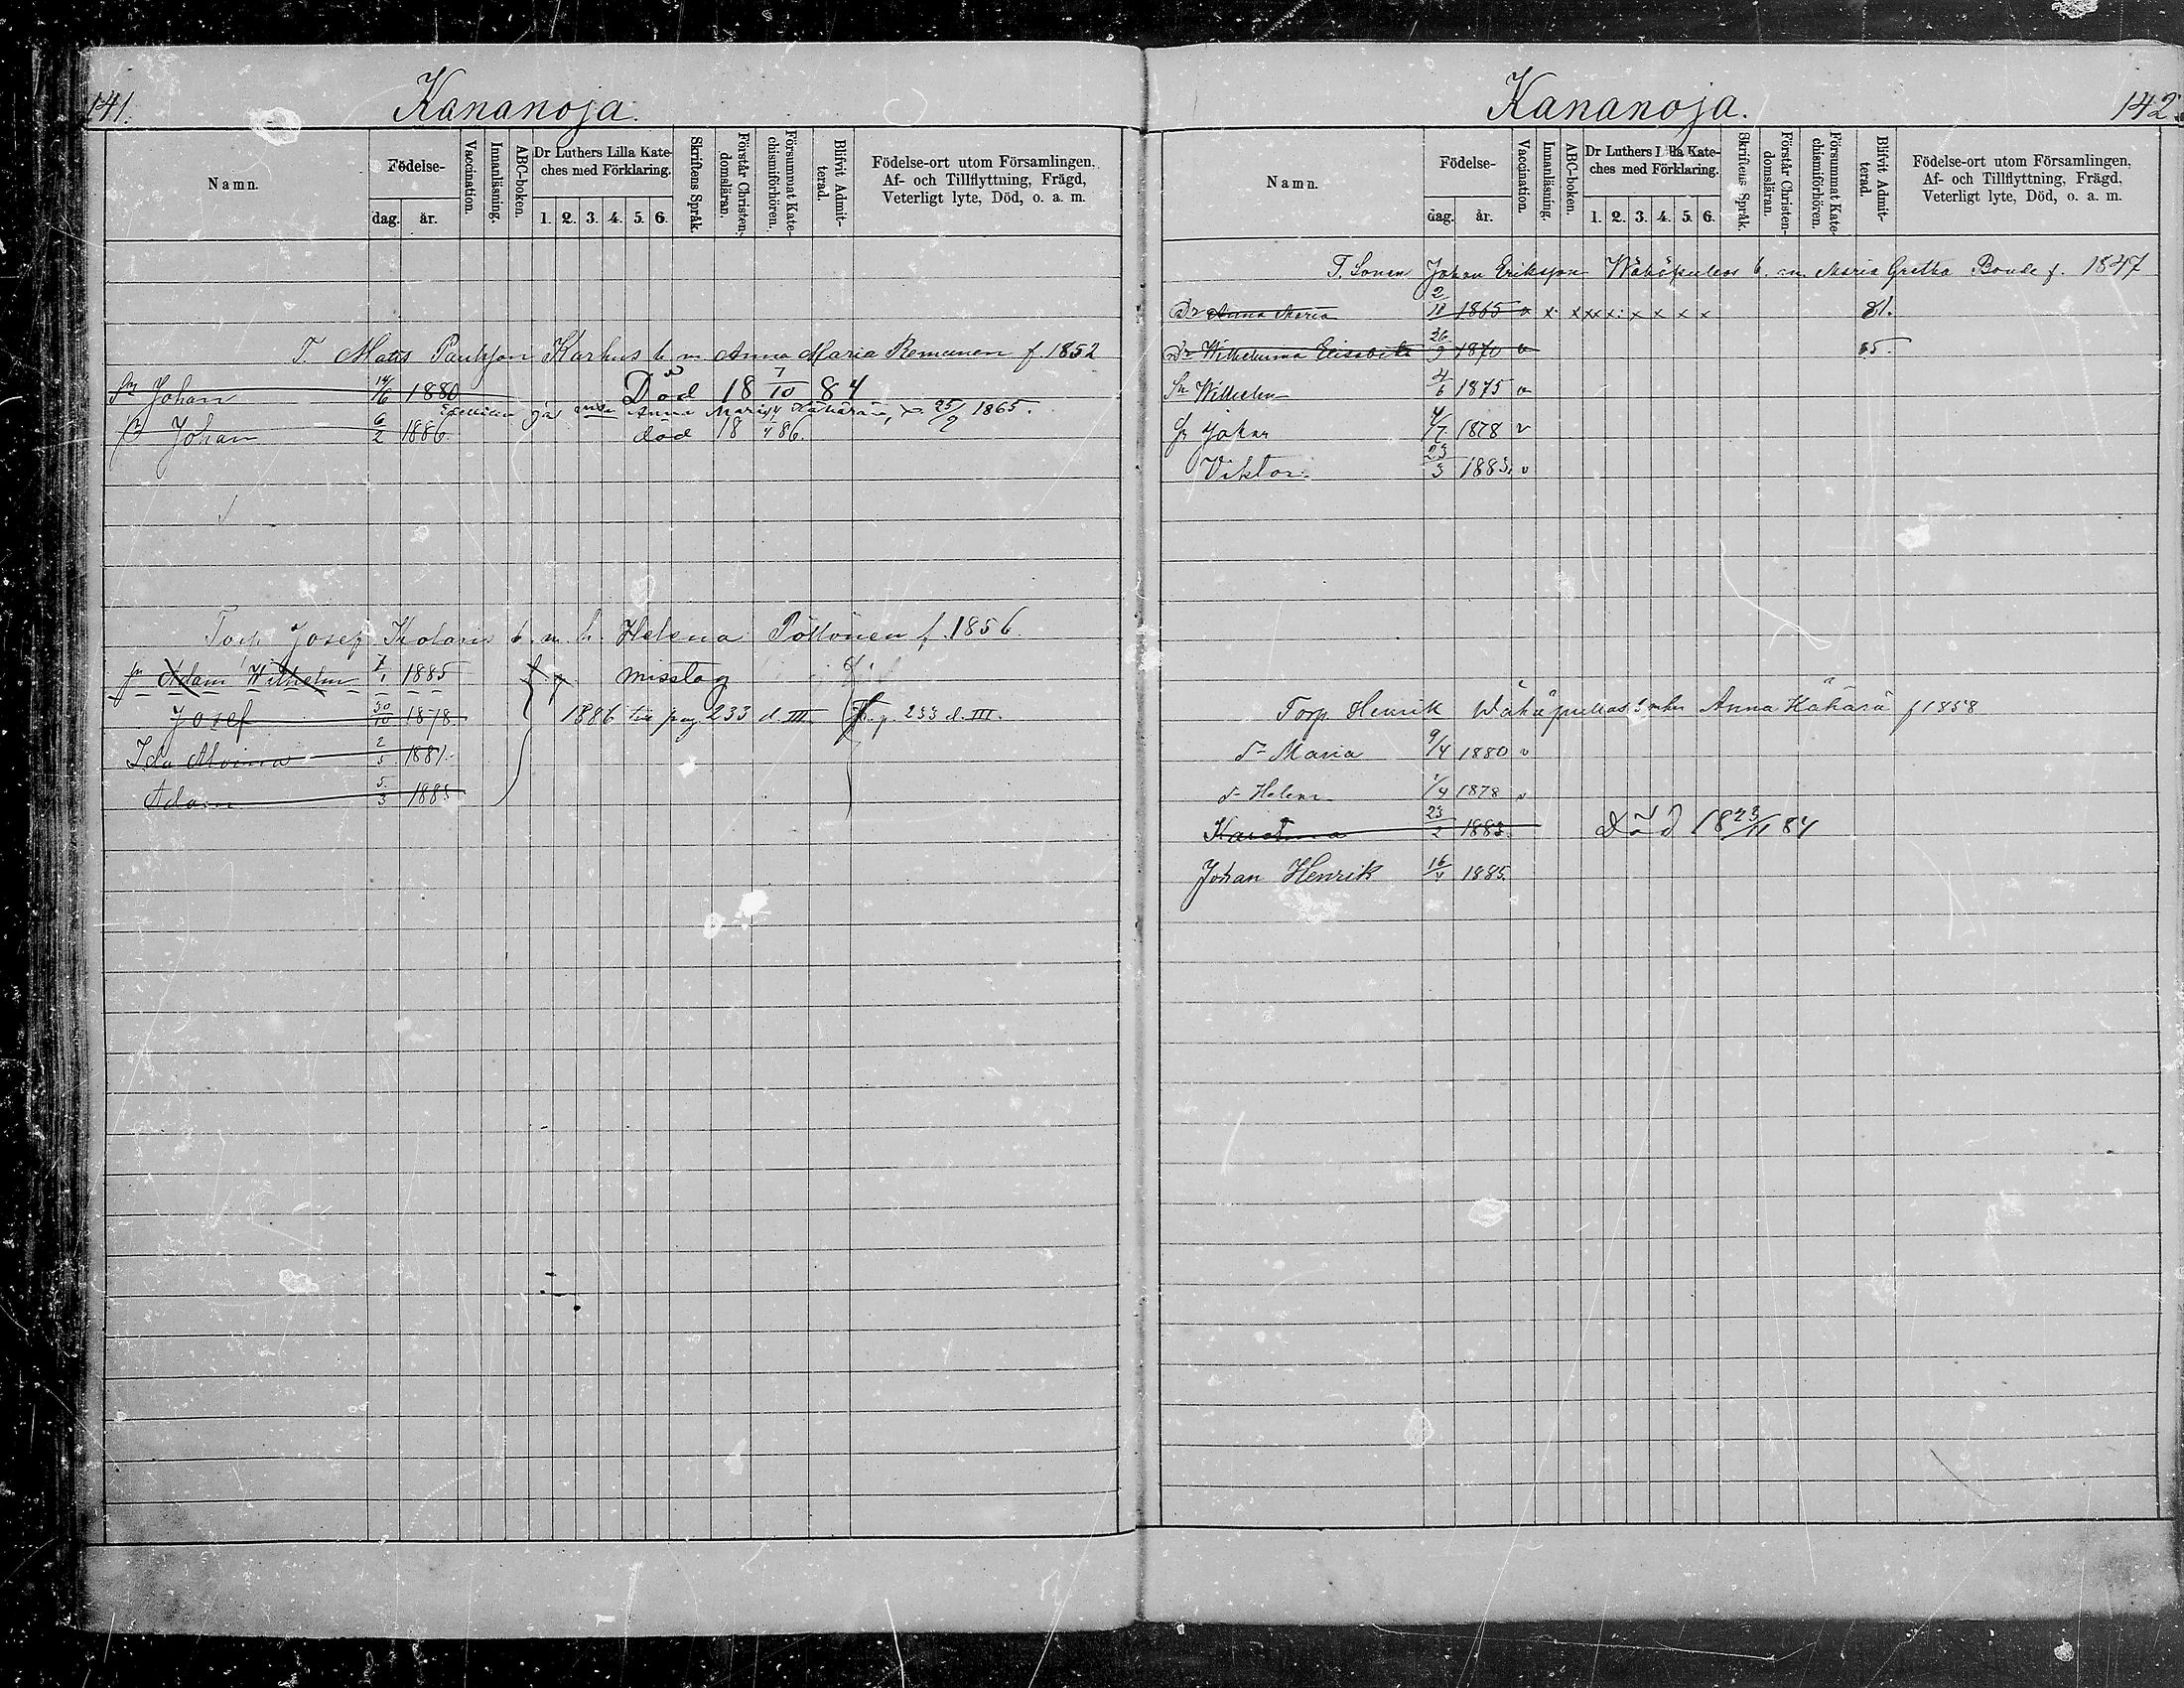 141.
Kananoja.
Namn.
Födelse-
dag. år.
Vaccination.
Innanläsning.
ABC-boken.
Dr Luthers Lilla Kate-
ches med Förklaring.
1. 2. 3. 4. 5. 6.
Skriftens Språk.
Förstår Christen-
domsläran.
Försummat Kate-
chismiförhören.
Blifvit Admit-
terad.
Födelse-ort utom Församlingen,
Af- och Tillflyttning, Frägd,
Veterligt lyte, Död, o. a. m.
T. Matts Paulsson Karhus b. m. Anna Maria Remunen f. 1852
Sn Johan 14/6 1880 Död 18 7/10 84
Anna Maria 25/2 1865.
Johan 6/2 1886. död 18 /4 86.
Torp. Josef b. m. h. Helena Pöllönen f. 1856
Adam Wilhelm 7/1 1885 misstag
Josef 30/10 1878. 1886 till pag. 233 d. III. p. 233 d. III.
Ida 2/5 1881.
Adam 5/3 1885
Kananoja.
142.
Namn.
Födelse-
dag. år.
Vaccination.
Innanläsning.
ABC-boken.
Dr Luthers Lilla Kate-
ches med Förklaring.
1. 2. 3. 4. 5. 6.
Skriftens Språk.
Förstår Christen-
domsläran.
Försummat Kate-
chismiförhören.
Blifvit Admit-
terad.
Födelse-ort utom Församlingen,
Af- och Tillflyttning, Frägd,
Veterligt lyte, Död, o. a. m.
T. Sonen Johan Eriksson b. m. Maria Gretha Bonde f. 1847
Dr Anna Maria 2/11 1865 v x x x x x x x x x 81.
Dr Wilhelmina Elisabeth 26/9 1870 v 85.
Sn Wilhelm 4/6 1875 v
Sn Johan 4/7 1878 v
Viktor 23/3 1883. v
Torp. Henrik Anna Kähärä f 1858
d- Maria 9/4 1880 v
d- Helena 1/4 1878 v
Karolina 23/2 1883. Död 18 23/11 84
Johan Henrik 16/4 1885.